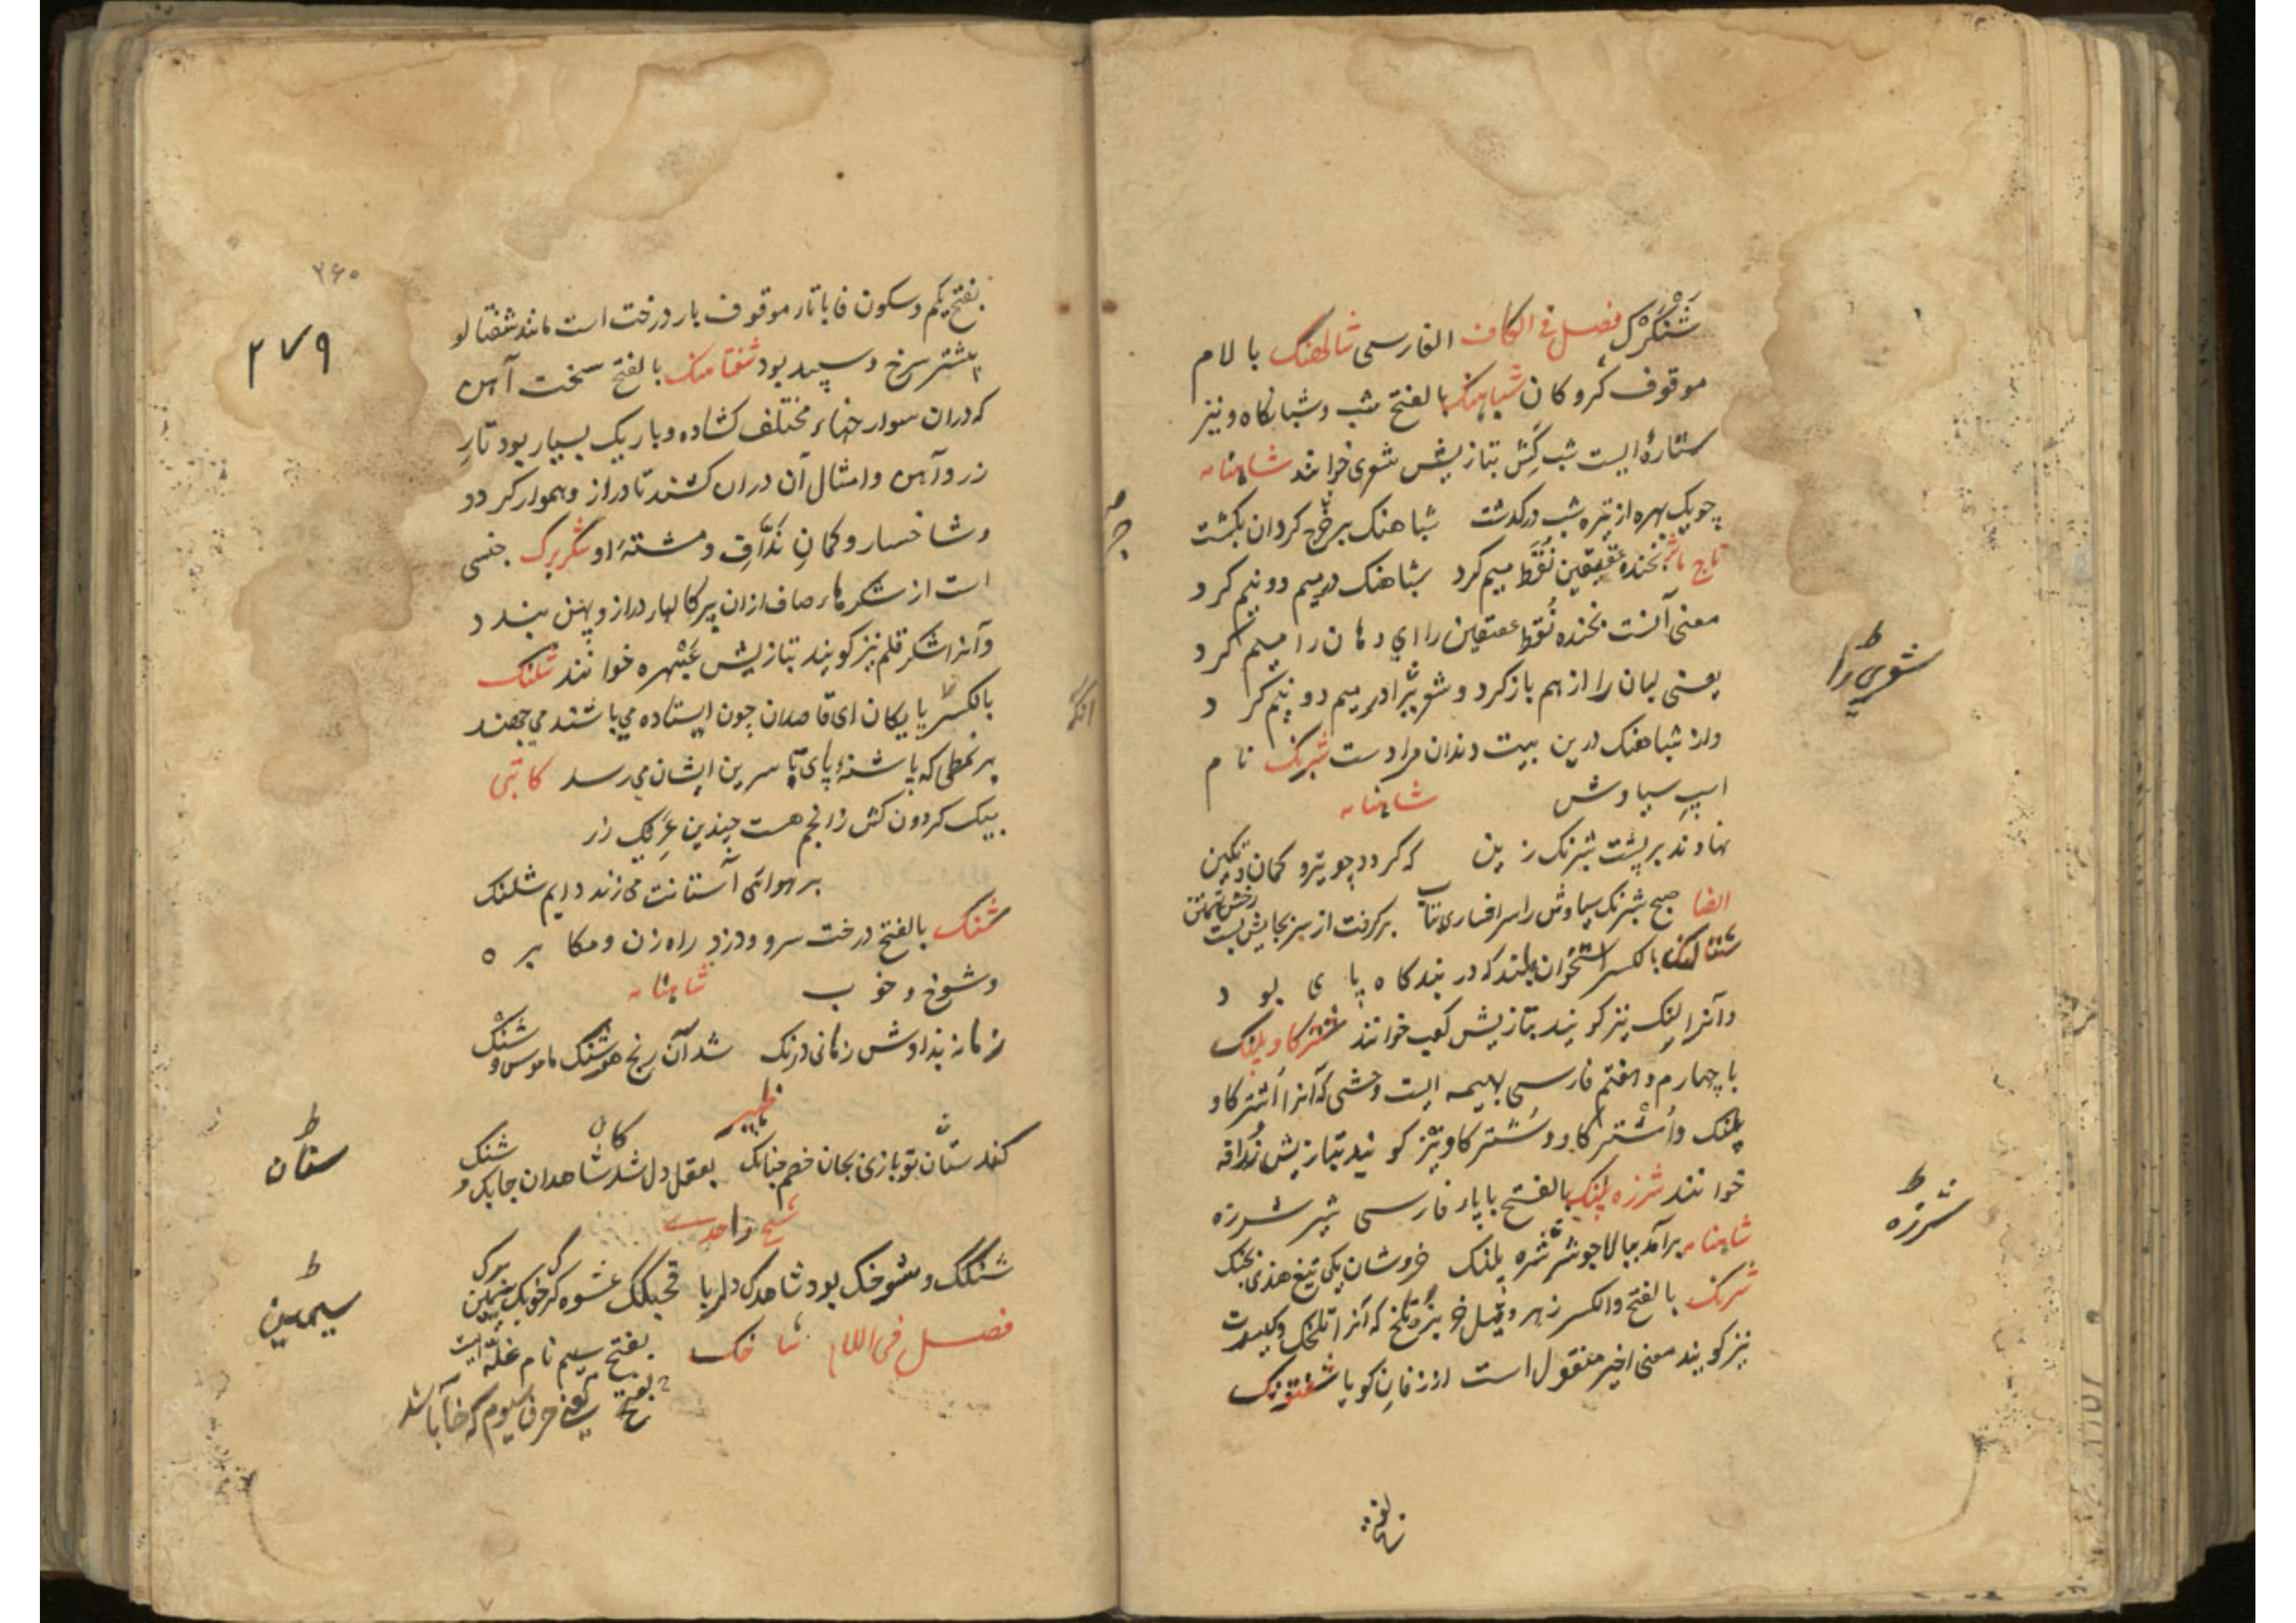 شنگرک فصل فی الکاف الفارسی شالهنگ با لام
موقوف گروکان شباهنگ بالفتح شب و شبانگاه و نیز
ستارهٔ ایست شب کش بتازیش شعری خوانند شاهنامه
چو یک بهره از تیره شب درگذشت شباهنک بر چرخ کردان بگشت
تاج بخنده عقیقین نقط میم کرد شباهنک در میم دو نیم کرد
معنی آنست بخنده نقط عقیقین را ای دهان را میم کرد
یعنی لبان را از هم باز کرد و شعری را در میم دو نیم کرد
و از شباهنک درین بیت دندان مرادست شبرنگ نام
اسپ سیاوش شاهنامه
نهادند بر پشت شبرنک زین که کردد چو نیرو کمان و نکین
ایضا صبح شبرنک سیاوش را سر افساری بتاب برکرفت از سر بجایش بست رخش تهمتن
شتالنک بالکسر استخوان بلند که در بندگاه پای بود
و آنرا لنک نیز کویند بتازیش کعب خوانند شترکاو پلنک
با چهارم و هفتم فارسی بهیمه ایست وحشی که آنرا اشترکاو
پلنک و اشترکاو و شترکاو نیز کویند بتازیش زرافه
خوانند شرزه پلنک بالفتح با پای فارسی شیر شرزه
شاهنامه برآمد ببالا چو شرزه پلنک خروشان یکی تیغ هندی بچنک
شرنک بالفتح والکسر زهر و قیل خربزه تلخ که آنرا تلخک و کبست
نیز کویند معنی اخیر منقول است از زفان کویا شفتورنک
شعری را
شرزه
بفتح
۲۶۰
۲۷۹
بفتح یکم و سکون فا با تا موقوف بار درخت است مانند شفتالو
بیشتر سرخ و سپید بود شفتاهنک بالفتح تخت آهن
که دران سوراخهاء مختلف کشاده و باریک بسیار بود تار
زر و آهن و امثال آن دران کشند تا دراز و هموار کردد
و شاخسار و کمان نداف و مشتهٔ او شکربرک جنسی
است از شکرهاء صاف ازان پرکالهاء دراز و پهن بندد
و آنرا شکر قلم نیز کویند بتازیش خوانند شلنک
بالکسر پایکان ای قاصدان چون ایستاده می باشند می جهند
بر نمطی که پاشنهٔ پای تا سرین ایشان می رسد کاتبی
پیک کردون کش ز انجم هست چندین زر
بر هوای آستانت می زند دایم شلنک
شنک بالفتح درخت سرو و دزد راه زن و مکابره
و شوخ و خوب شاهنامه
زمانه ندادش زمانی درنک شد آن رنج هوشنک با موس و شنک
ظهیر
کند سنان تو بازی بجان خصم چنانک بعقل و دل شاهدان چابک و شنک
شیخ واحدی
شنکک و شوخک بود شاهدک دلربا عشوه کر خوبک سیمین
فصل فی اللام شاخک بفتح سیم نام غله ایست
بفتح یعنی حرف سیوم که خا باشد
سنان
سیمین